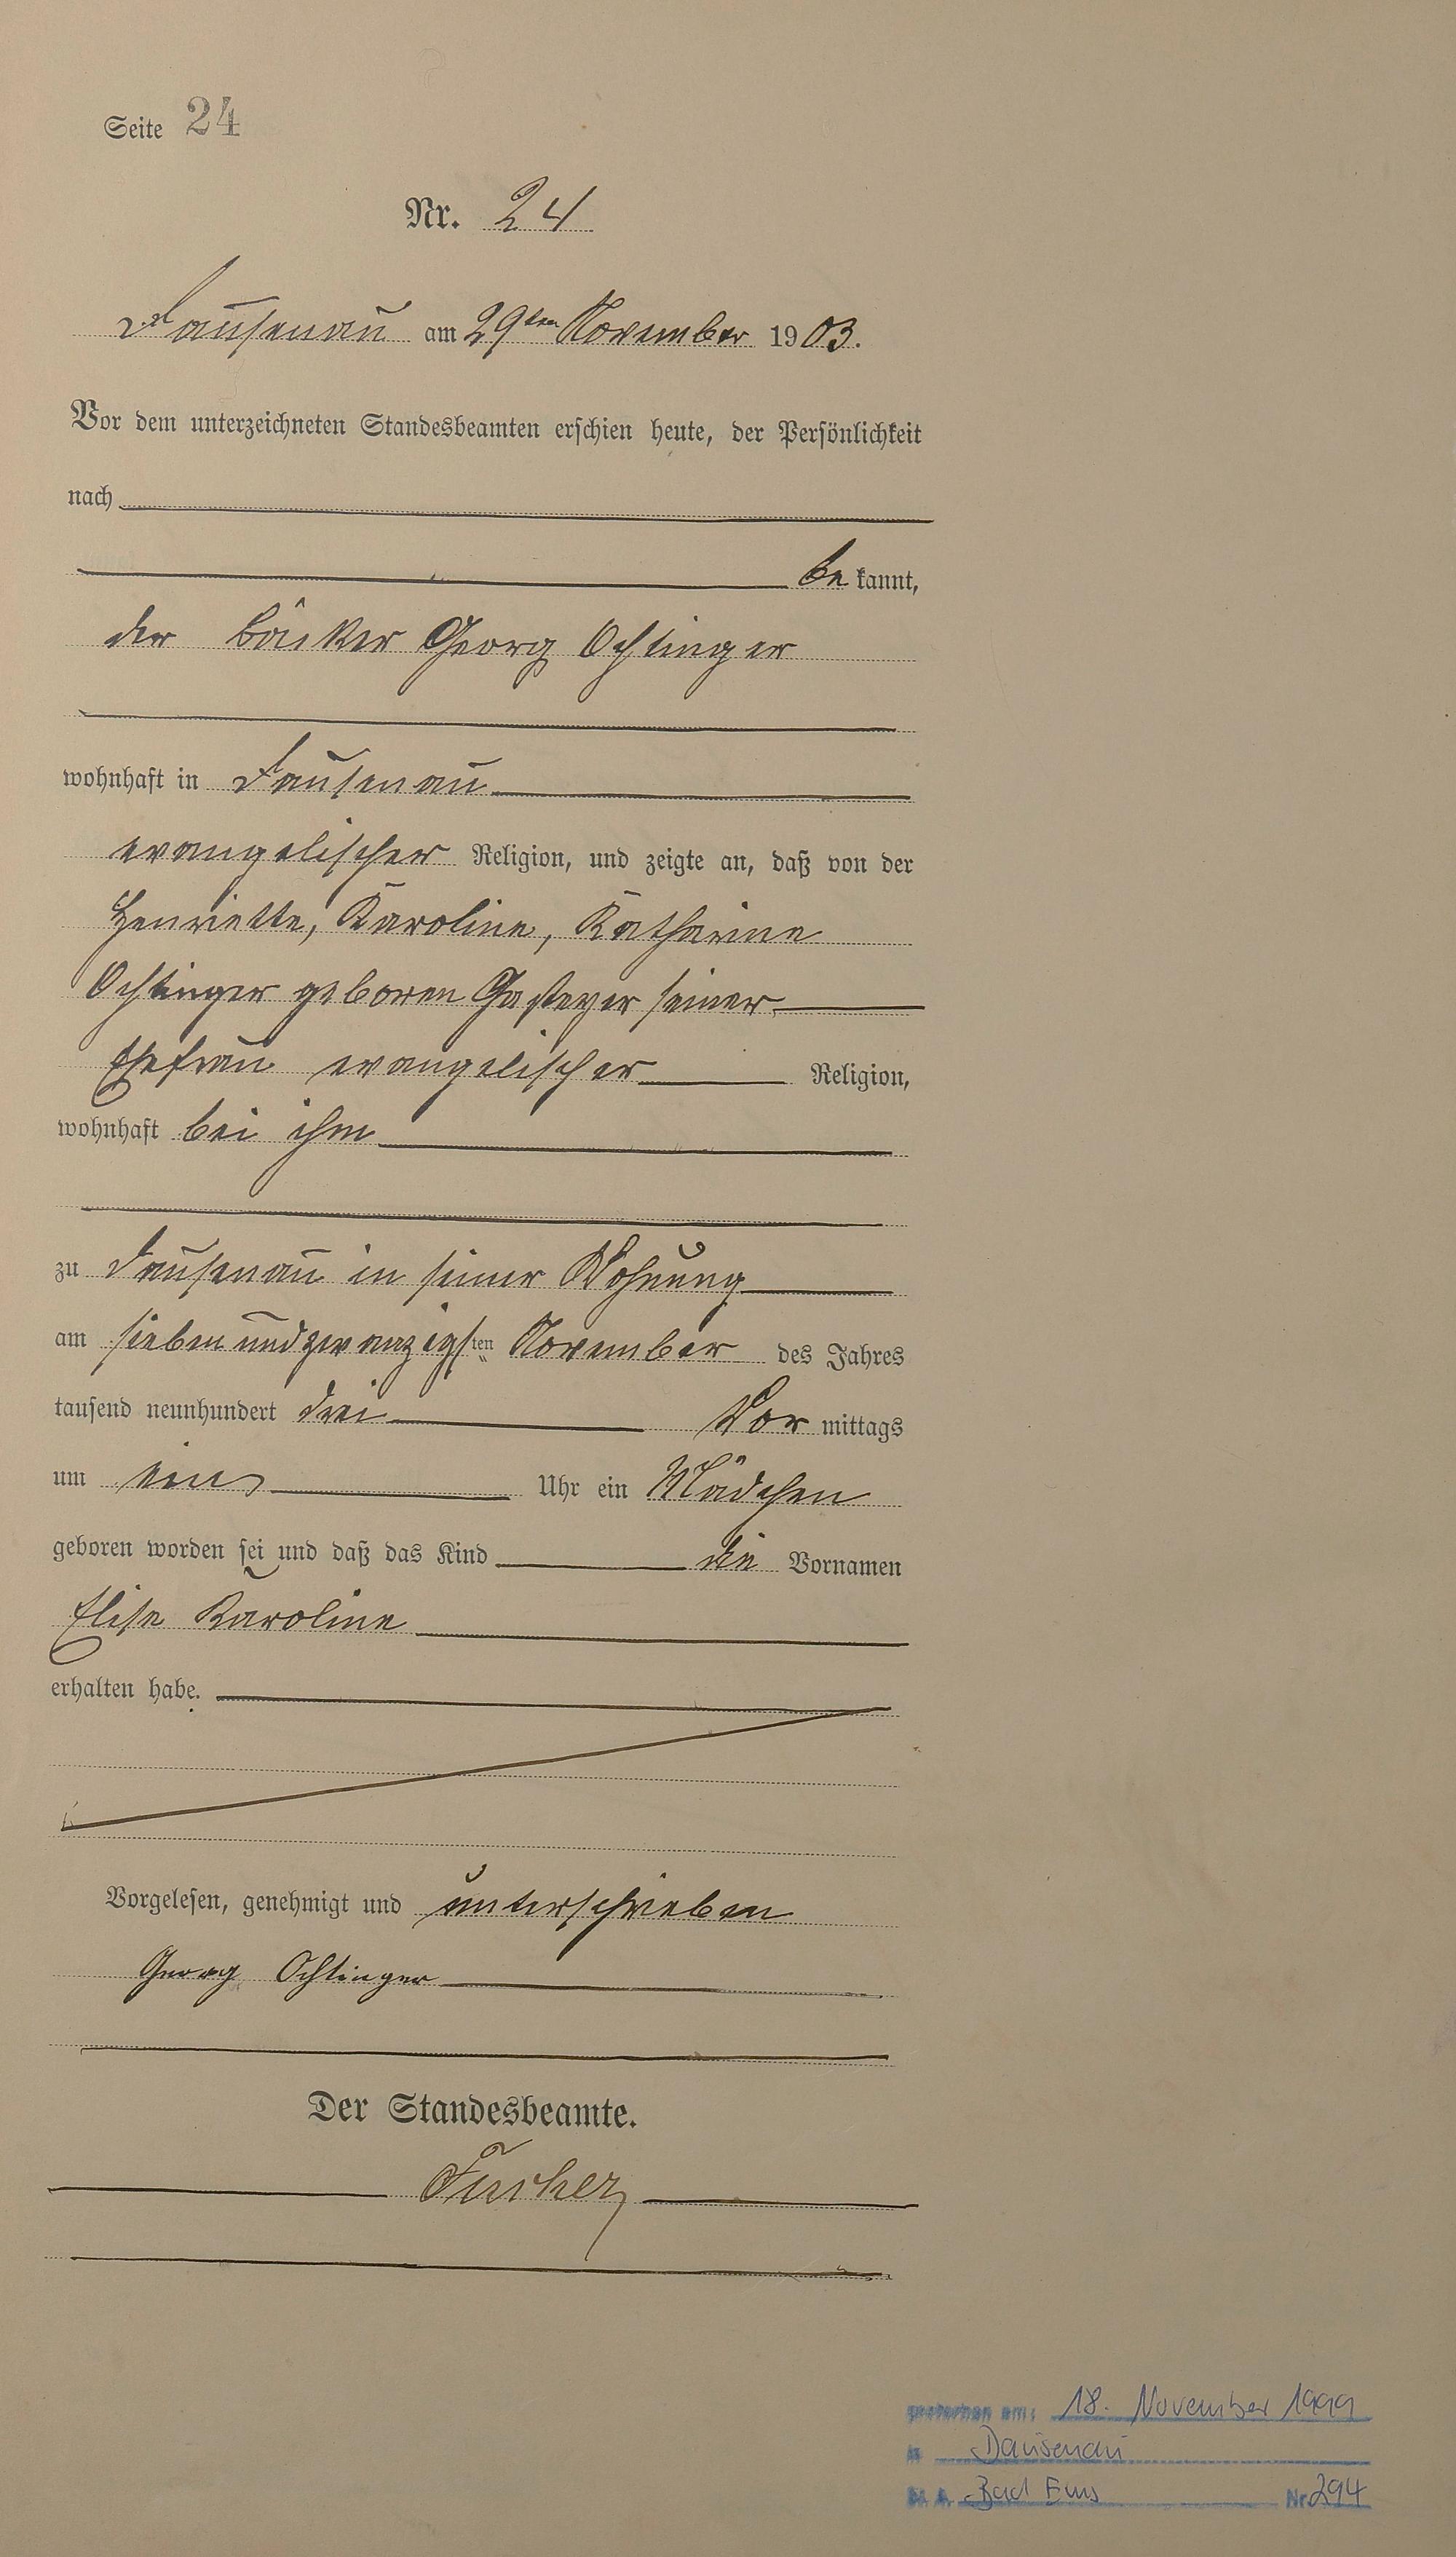 Seite 24
Nr. 24
Dausenau am 29ten November 1903.
Vor dem unterzeichneten Standesbeamten erschien heute, der Persönlichkeit
nach
be kannt,
der Bäcker Georg Ochtinger
wohnhaft in Dausenau
evangelischer Religion, und zeigte an, daß von der
Henriette, Karoline, Katharine
Ochtinger geboren Gasteyer seiner
Ehefrau evangelischer Religion,
wohnhaft bei ihm
zu Dausenau in seiner Wohnung
am siebenundzwanzigsten November des Jahres
tausend neunhundert drei Vor mittags
um eins Uhr ein Mädchen
geboren worden sei und daß das Kind die Vornamen
Elise Karoline
erhalten habe.
Vorgelesen, genehmigt und unterschrieben
Georg Ochtinger
Der Standesbeamte.
gestorben am: 18. November 1999
in Dausenau
St. A. Bad Ems Nr. 294